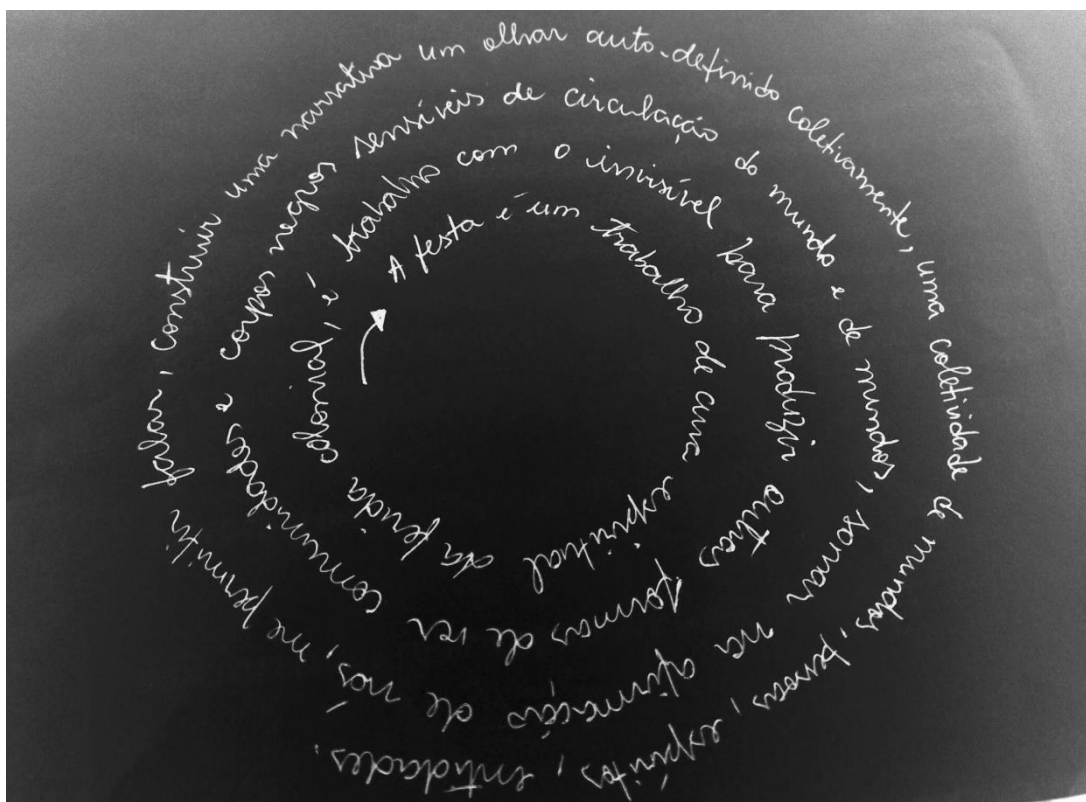 A festa é um trabalho de cura espiritual da ferida colonial, é
trabalho com o invisível para produzir outras formas de ver comunidades e
corpos negros sensíveis de circulação do mundo e de mundos, somar na afirmação de nós, me permitir falar,
construir uma narrativa um olhar auto-definido coletivamente, uma coletividade de mundos, pessoas, espíritos, entidades.